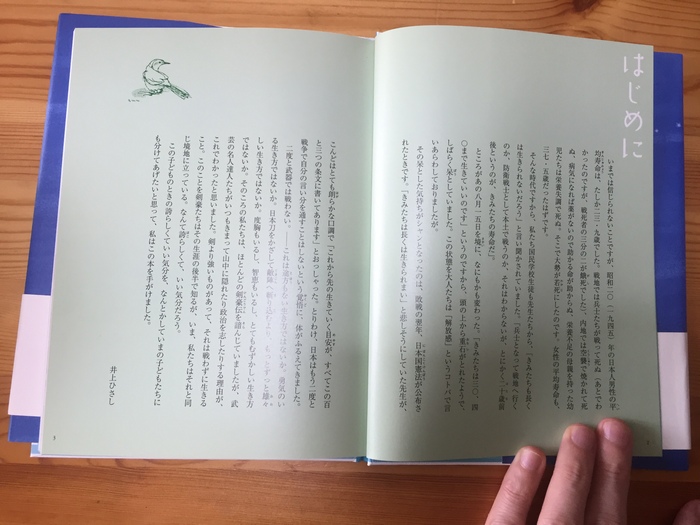 はじめに
いまでは信じられないことですが、昭和二〇（一九四五）年の日本人男性の平
均寿命は、たしか二三・九歳でした。戦地では兵士たちが戦って死ぬ（あとでわ
かったのですが、戦死者の三分の二が餓死でした）、内地では空襲で焼かれて死
ぬ、病気になれば薬がないので助かる命が助からぬ、栄養不足の母親を持った幼
児たちは栄養失調で死ぬ。そこで大勢が若死にしたのです。女性の平均寿命も、
三七・五歳だったはずです。
そんな時代ですから、私たち国民学校生徒も先生たちから、「きみたちも長く
は生きられないだろう」と言い聞かされていました。「兵士となって戦地へ行く
のか、防衛戦士として本土で戦うのか、それはわからないが、とにかく、二十歳前
後というのが、きみたちの寿命だ」。
ところがあの八月一五日を境に、なにもかも変わった。「きみたちは三〇、四
〇まで生きていいのです」というのですから、頭の上から重石がとれたようで、
しばらく呆としていました。この状態を大人たちは「解放感」というコトバで言
いあらわしておりましたが。
その呆とした気持ちがシャンとなったのは、敗戦の翌年、日本国憲法が公布さ
れたときです。「きみたちは長くは生きられまい」と悲しそうにしていた先生が、
こんどはとても朗らかな口調で「これから先の生きていく目安が、すべてこの百
と三つの条文に書いてあります」とおっしゃった。とりわけ、日本はもう二度と
戦争で自分の言い分を通すことはしないという覚悟に、体がふるえてきました。
二度と武器では戦わない。――これは途方もない生き方ではないか。勇気のい
る生き方ではないか。日本刀をかざして敵陣へ斬り込むより、もっとずっと雄々
しい生き方ではないか。度胸もいるし、智恵もいるし、とてもむずかしい生き方
ではないか。そのころの私たちは、ほとんどの剣豪伝を諳んじていましたが、武
芸の名人達人たちがいつもきまって山中に隠れたり政治を志したりする理由が、
これでわかったと思いました。剣より強いものがあって、それは戦わずに生きる
こと。このことを剣豪たちはその生涯の後半で知るが、いま、私たちはそれと同
じ境地に立っている。なんて誇らしくて、いい気分だろう。
この子どものときの誇らしくていい気分を、なんとかしていまの子どもたちに
も分けてあげたいと思って、私はこの本を手がけました。
井上ひさし